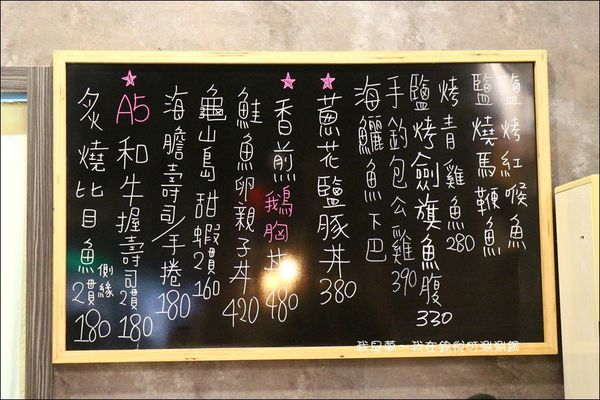 鹽烤紅喉魚
鹽燒馬鞭魚
烤青雞魚280
鹽烤劍旗魚腹330
手釣包公雞390
海鱺魚下巴
★蔥花鹽豚丼380
★香煎鵝胸丼480
鮭魚卵親子丼420
龜山島甜蝦2貫160
海膽壽司/手捲180
★A5和牛握壽司2貫180
炙燒比目魚側緣2貫180